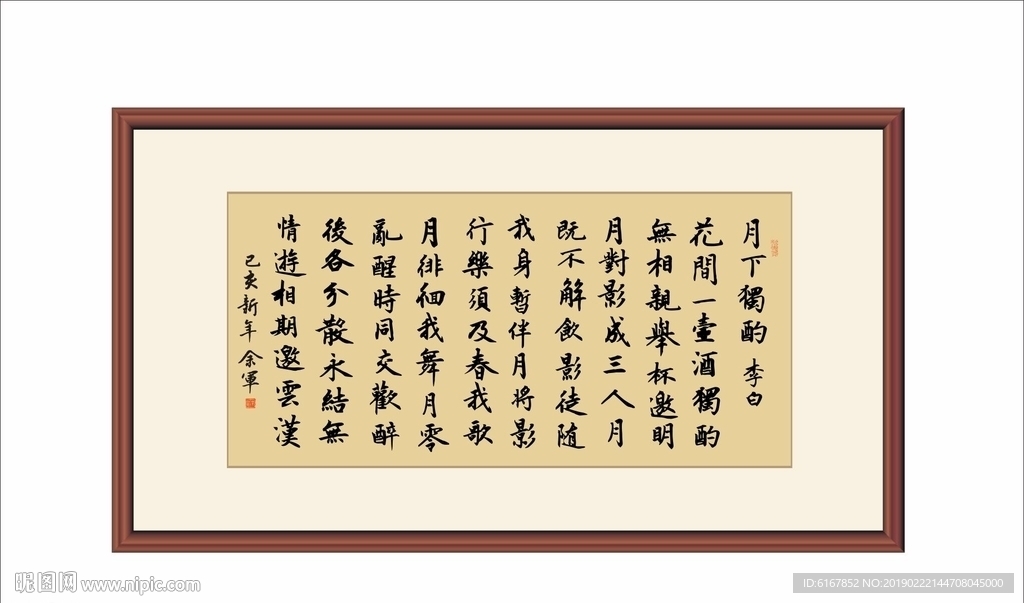 月下獨酌 李白
花間一壺酒獨酌
無相親舉杯邀明
月對影成三人月
既不解飲影徒随
我身暫伴月将影
行樂須及春我歌
月徘徊我舞月零
亂醒時同交歡醉
後各分散永結無
情遊相期邀雲漢
己亥新年 余軍
昵图网 www.nipic.com
ID:6167852 NO:20190222144708045000